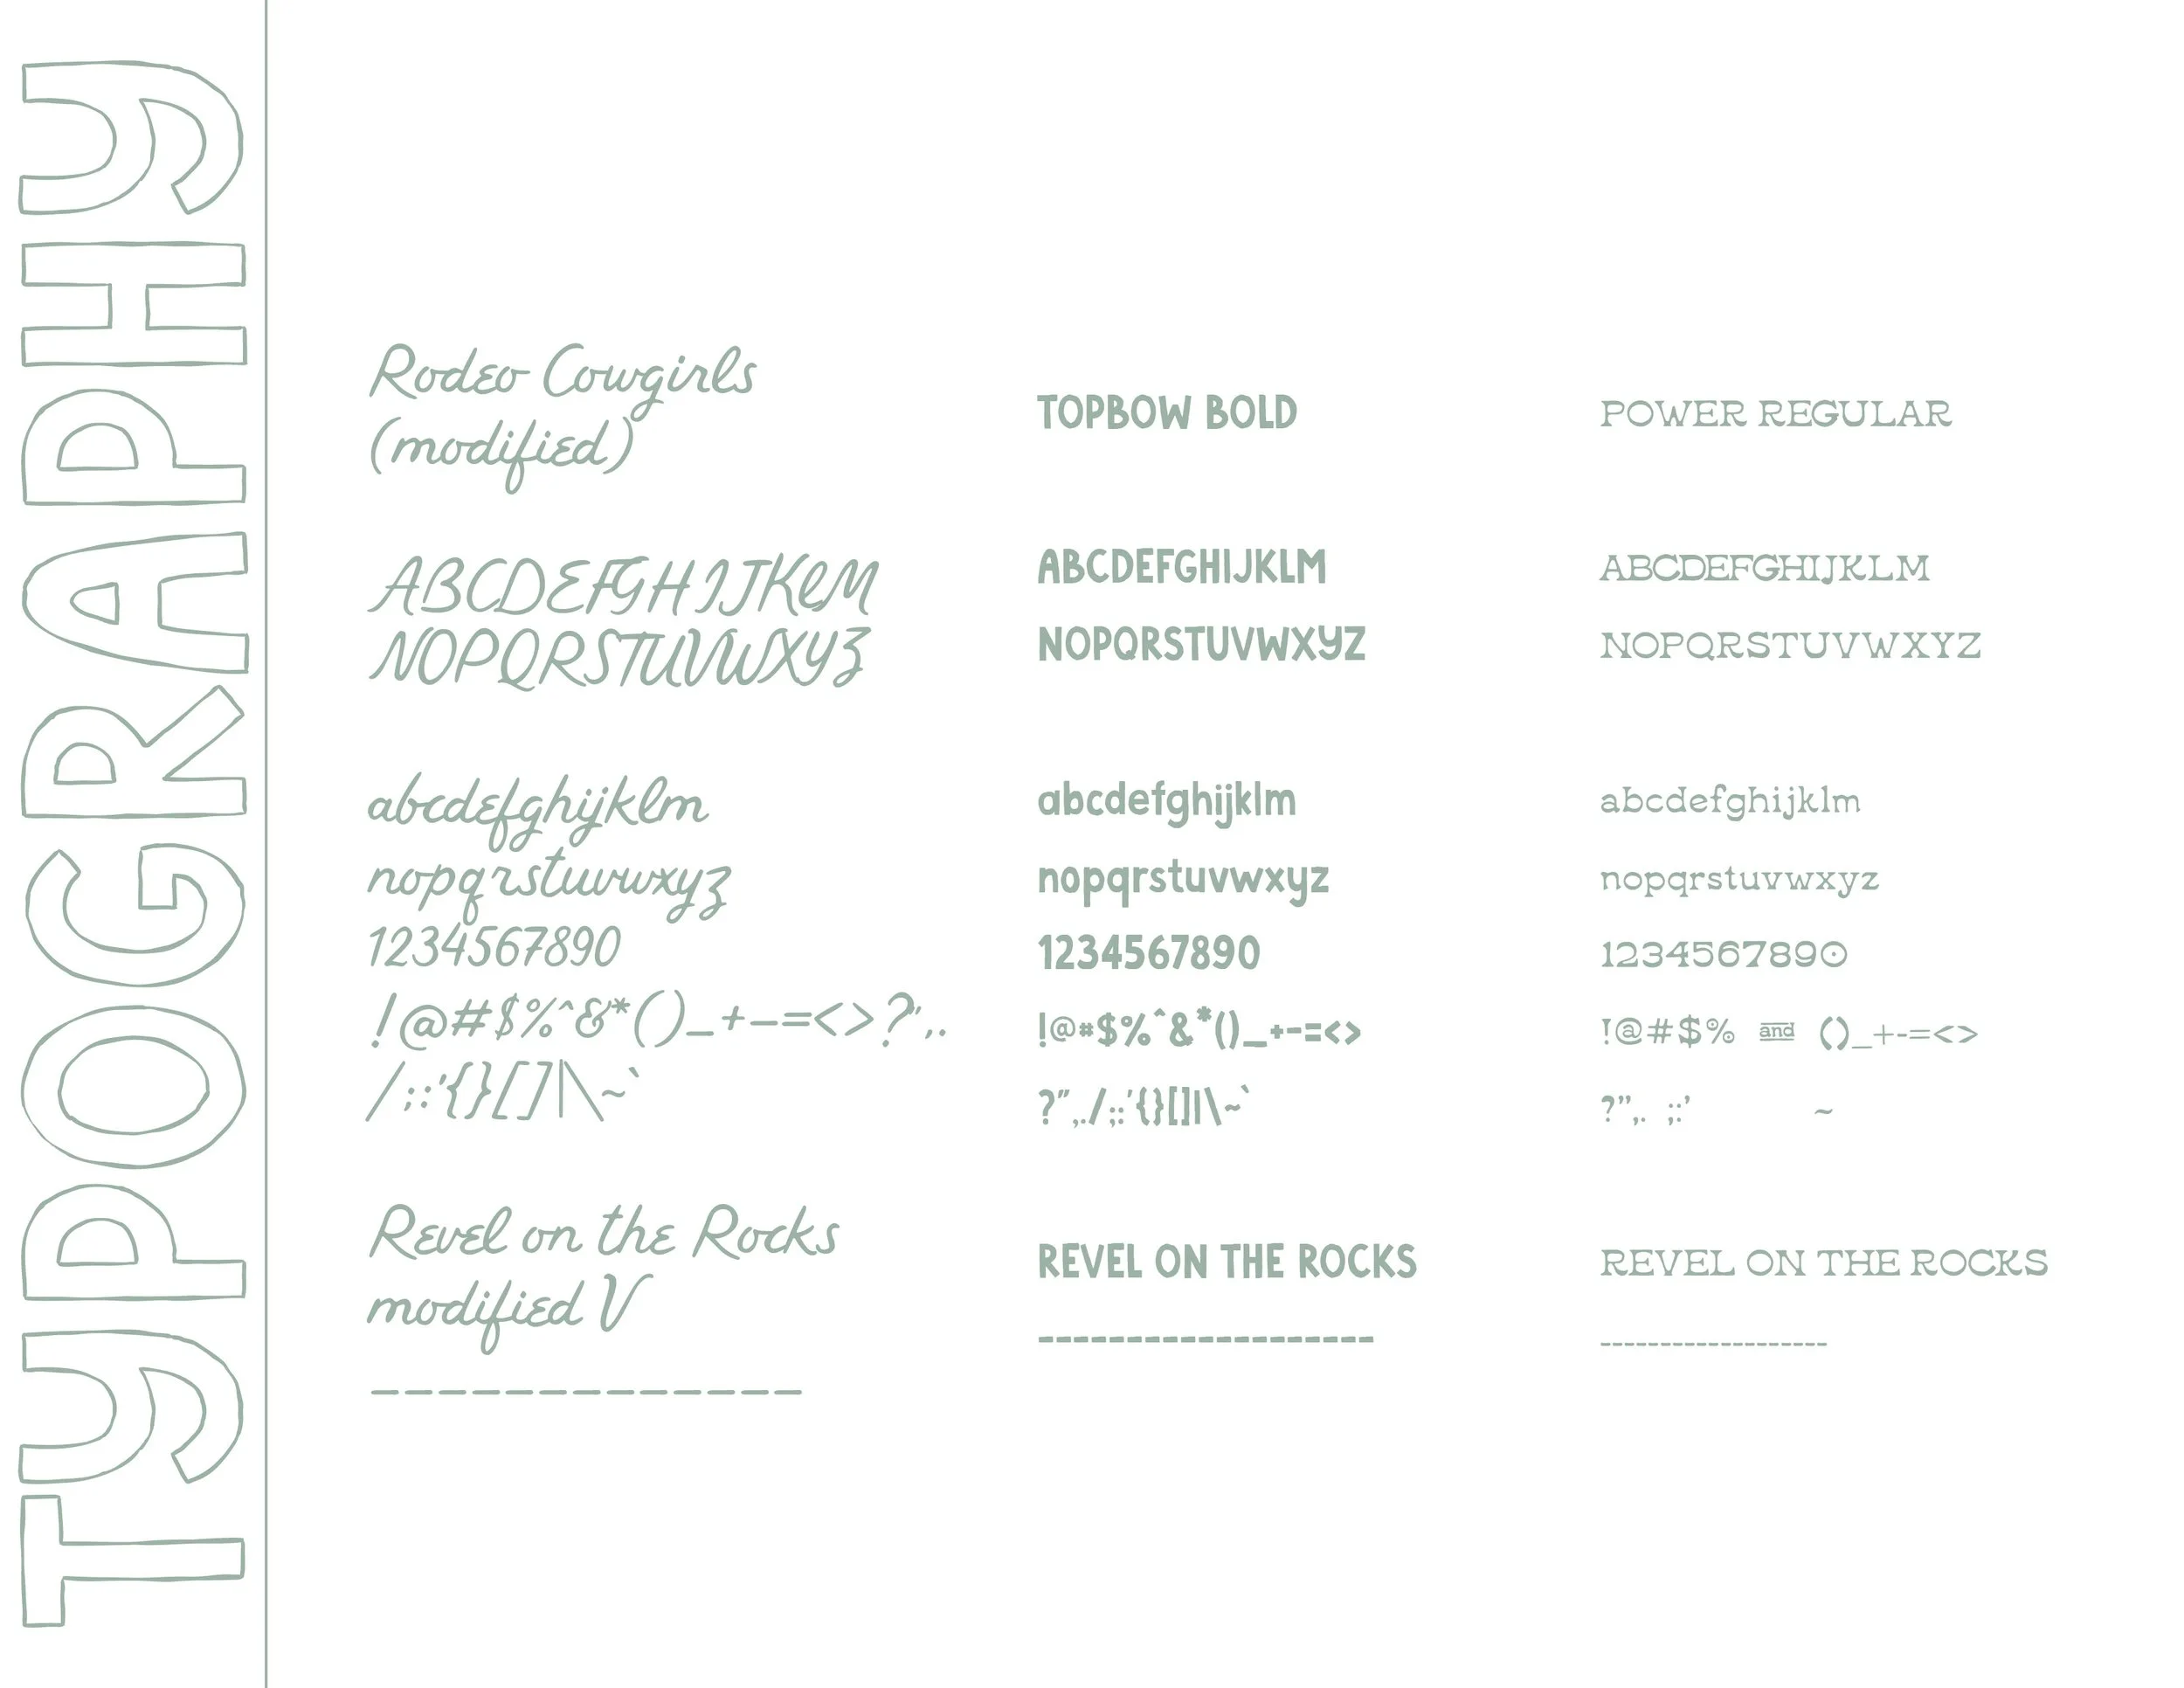 TYPOGRAPHY
Rodeo Cowgirls
(modified)
ABCDEFGHIJKLM
NOPQRSTUVWXYZ
abcdefghijklm
nopqrstuvwxyz
1234567890
!@#$%^&*()_+-=<>?",.
/;:'{}[]|\~`
Revel on the Rocks
modified V
_____________
TOPBOW BOLD
ABCDEFGHIJKLM
NOPQRSTUVWXYZ
abcdefghijklm
nopqrstuvwxyz
1234567890
!@#$%^&*()_+-=<>
?",./;:'{}[]|\~`
REVEL ON THE ROCKS
___________________
POWER REGULAR
ABCDEFGHIJKLM
NOPQRSTUVWXYZ
abcdefghijklm
nopqrstuvwxyz
1234567890
!@#$% and ()_+-=<>
?",. ;:' ~
REVEL ON THE ROCKS
___________________